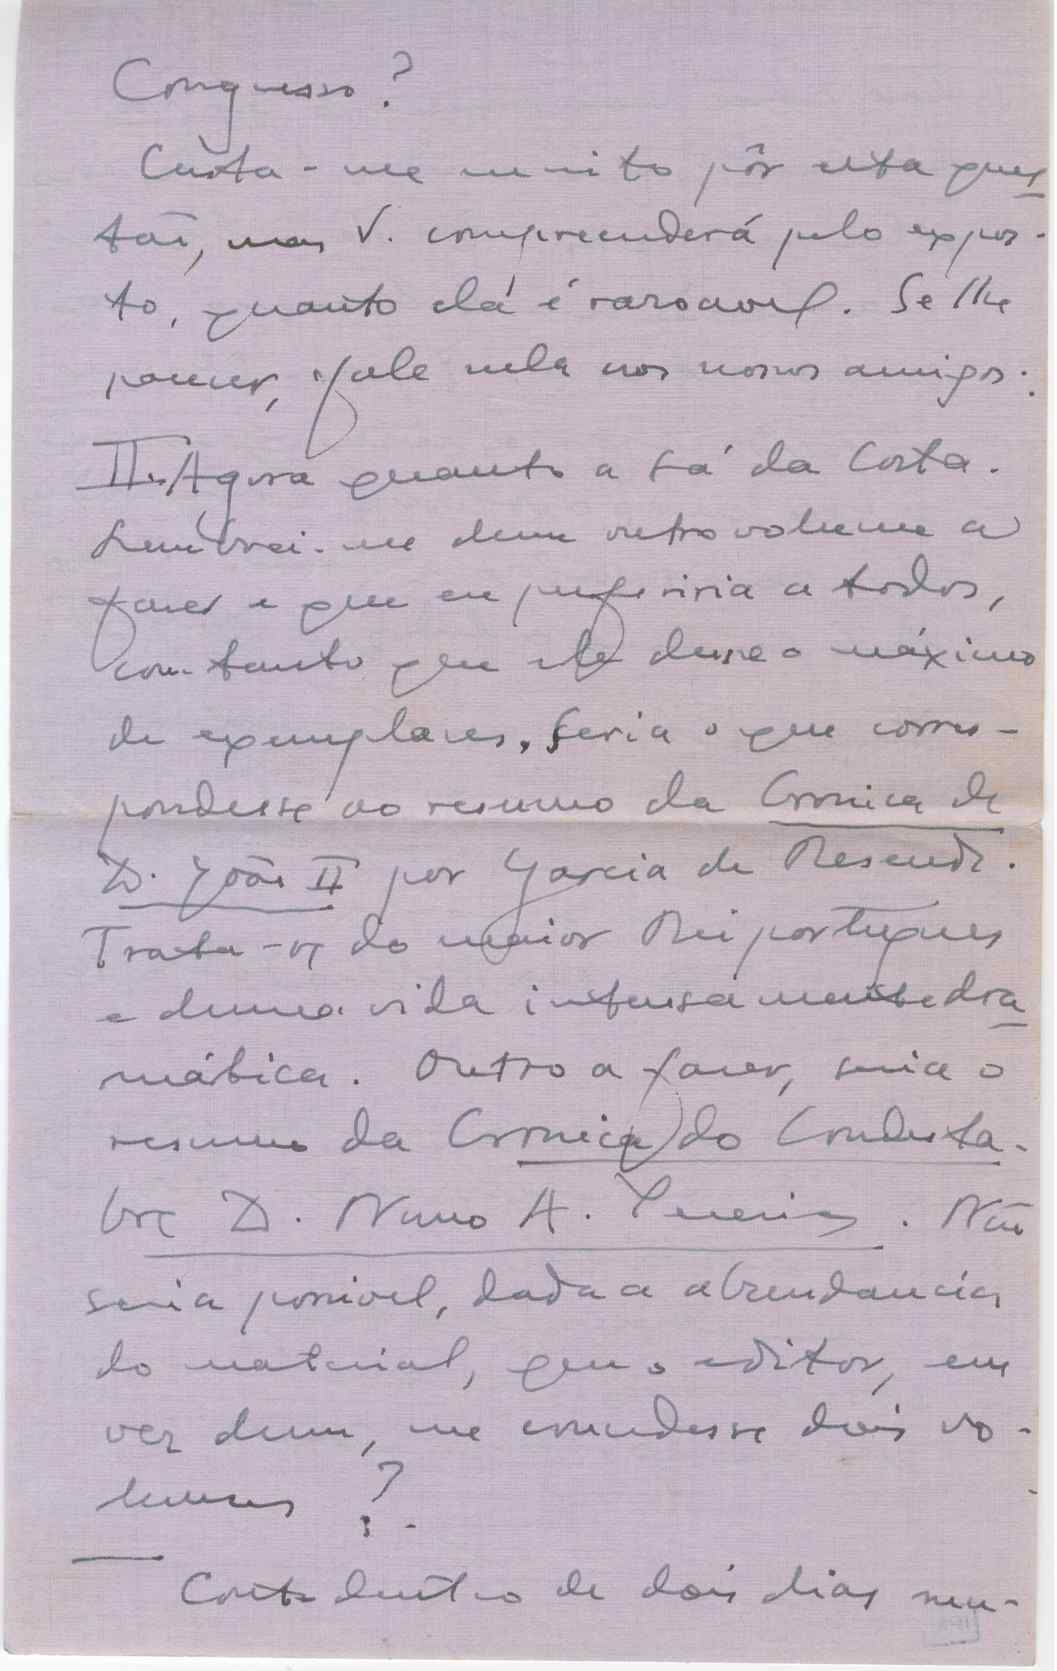 Congresso?
Custa-me muito pôr esta ques
tão, mas V. compreenderá pelo expos-
to, quanto ela é razoavel. Se lhe
parecer, fale nela aos nossos amigos.
II. Agora quanto a Sá da Costa.
Lembrei-me dum outro volume a
fazer e que eu preferiria a todos,
com-tanto que ele desse o máximo
de exemplares. Seria o que corres-
pondesse ao resumo da Cronica de
D. João II por Garcia de Resende.
Trata-se do maior Rei portugues
e duma vida intensamente dra
mática. Outro a fazer, seria o
resumo da Cronica do Condesta-
bre D. Nuno A. Pereira. Não
seria possivel, dada a abundancia
do material, que o editor, em
vez dum, me concedesse dois vo-
lumes?
Conto dentro de dois dias